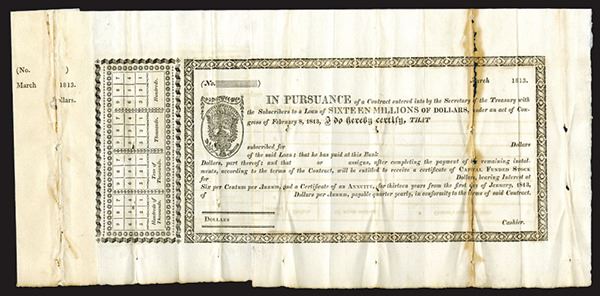 (No. )
March 1813.
Dollars.
Hundreds.
Thousands.
Tens of Thousands.
Hundreds of Thousands.
(No.
March 1813.
IN PURSUANCE of a Contract entered into by the Secretary of the Treasury with
the Subscribers to a Loan of SIXTEEN MILLIONS OF DOLLARS, under an act of Con-
gress of February 8, 1813, I do hereby certify, THAT
subscribed for Dollars
of the said Loan: that he has paid at this Bank
Dollars, part thereof; and that or assigns, after completing the payment of the remaining instal-
ments, according to the terms of the Contract, will be entitled to receive a certificate of CAPITAL FUNDED STOCK
for Dollars, bearing Interest at
Six per Centum per Annum, and a Certificate of an ANNUITY, for thirteen years from the first day of January, 1813,
of Dollars per Annum, payable quarter yearly, in conformity to the terms of said Contract.
DOLLARS
Cashier.